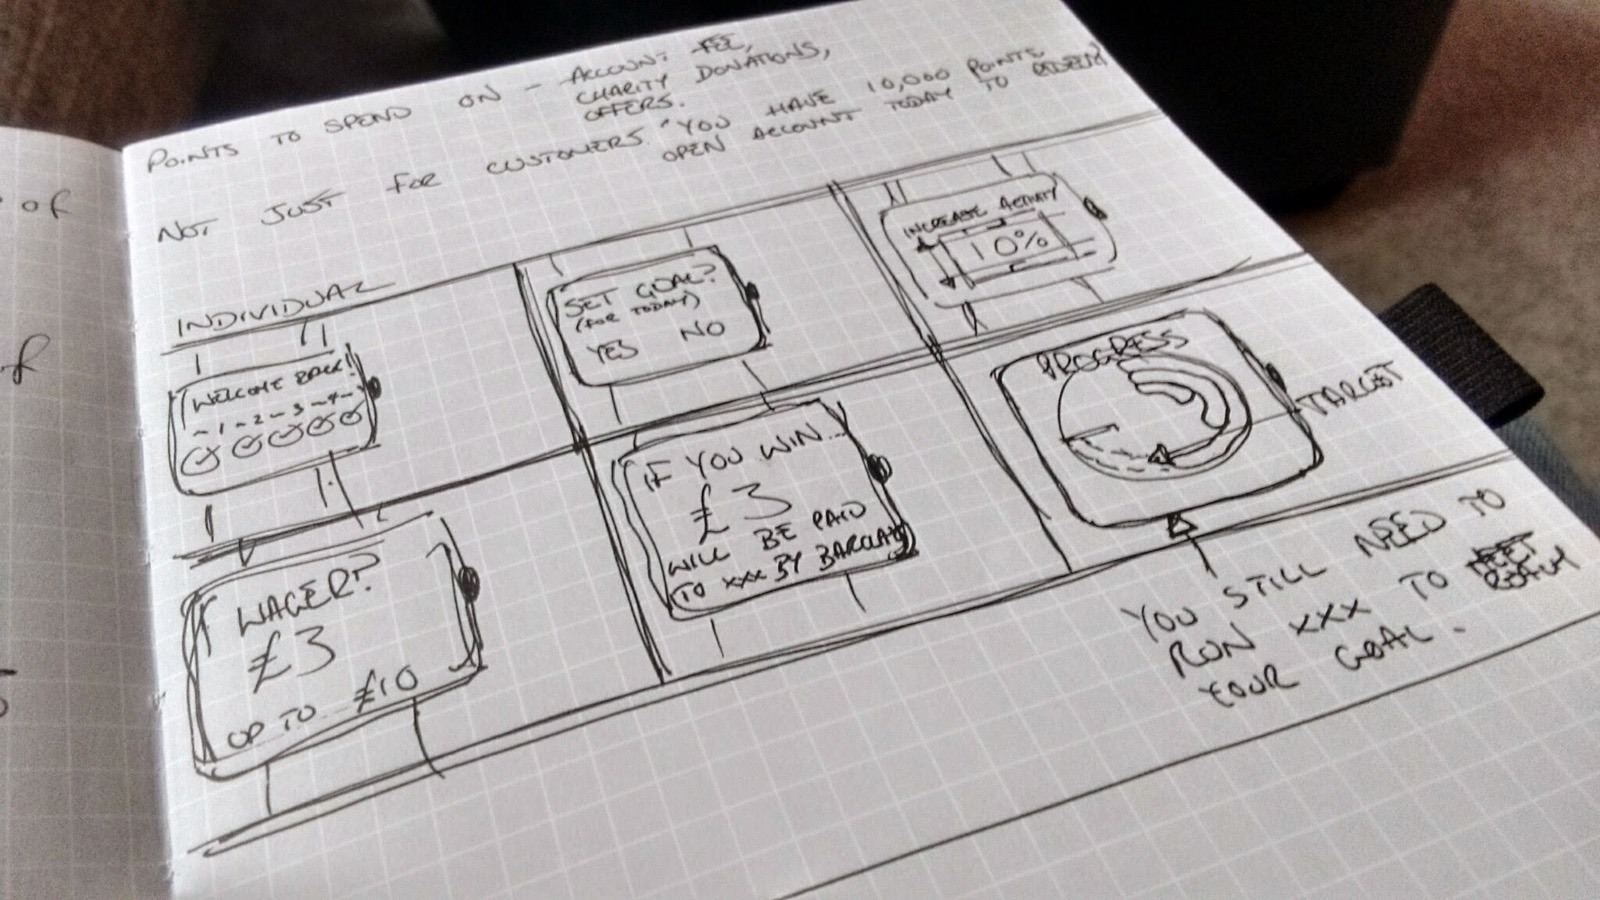 POINTS TO SPEND ON - ACCOUNT FEE,
CHARITY DONATIONS,
OFFERS.
NOT JUST FOR CUSTOMERS. "YOU HAVE 10,000 POINTS
OPEN ACCOUNT TODAY TO REDEEM"
INDIVIDUAL
WELCOME BACK!
- 1 - 2 - 3 - 4 -
SET GOAL?
(FOR TODAY)
YES NO
INCREASE ACTIVITY
10%
WAGER?
£3
UP TO £10
IF YOU WIN...
£3
WILL BE PAID
TO XXX BY BARCLAYS
PROGRESS
TARGET
YOU STILL NEED TO
RUN XXX TO REACH
YOUR GOAL.
of
f